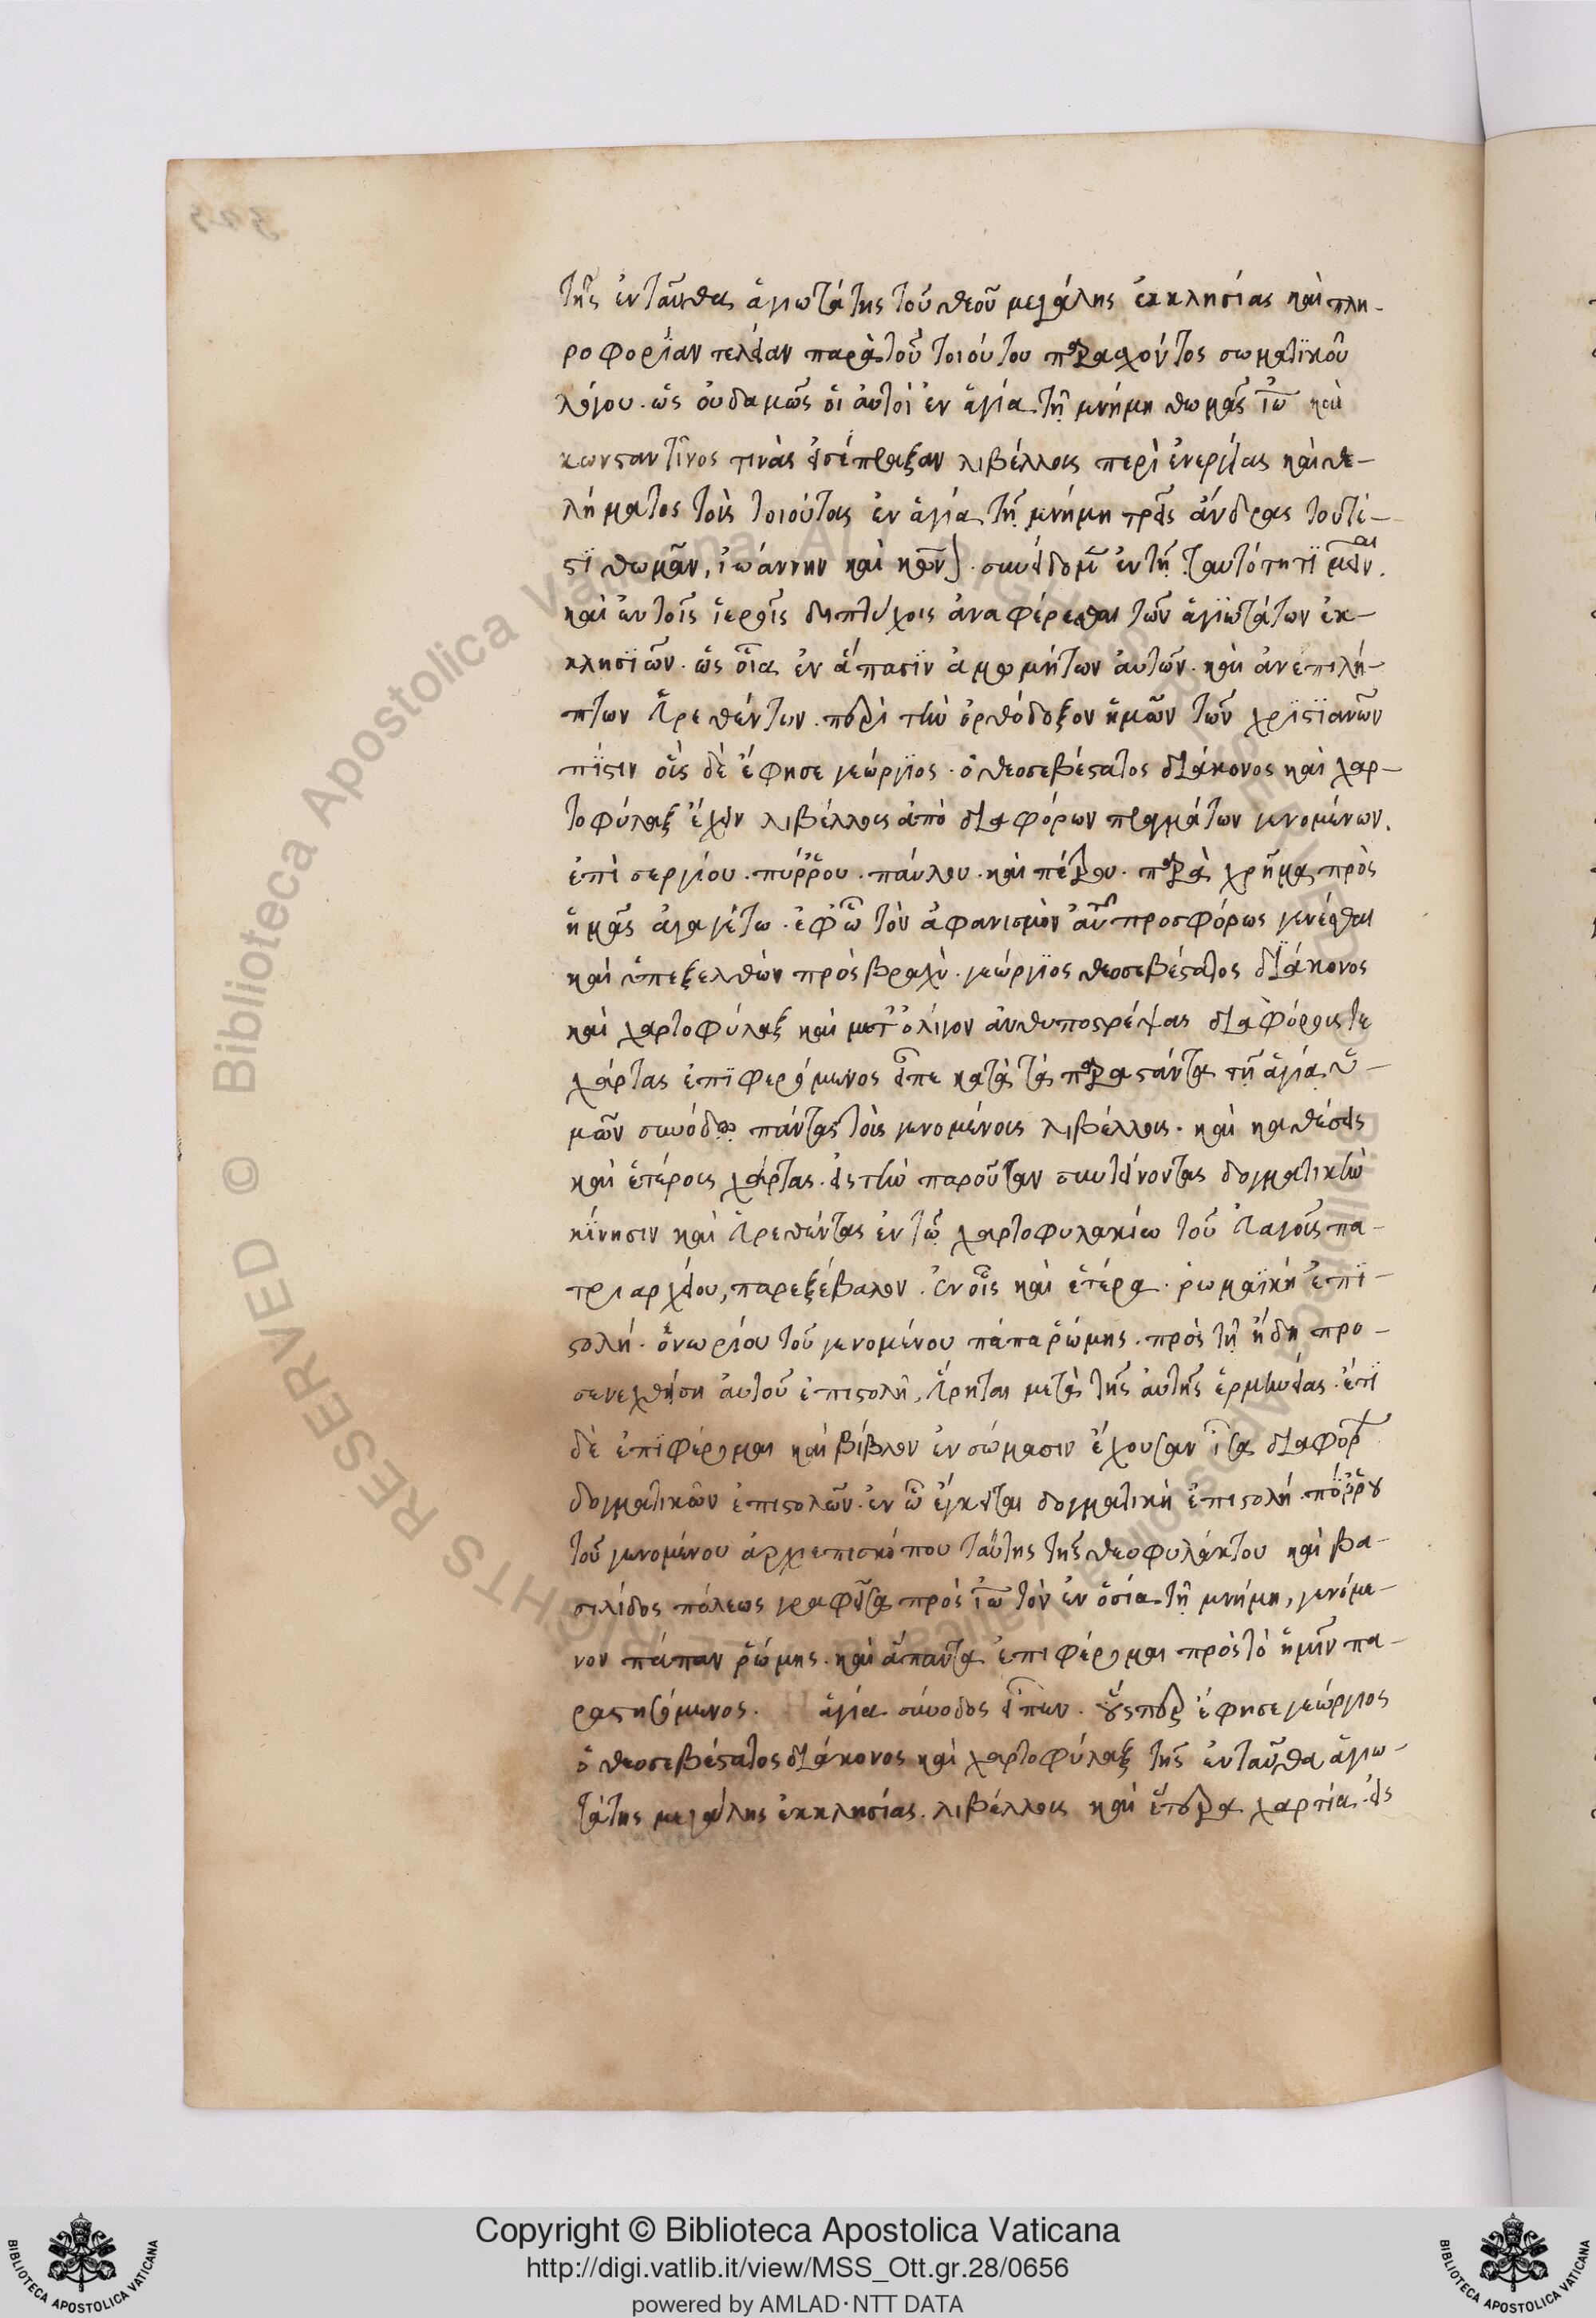 τῆς ἐνταῦθα ἁγιωτάτης τοῦ θεοῦ μεγάλης ἐκκλησίας καὶ πλη-
ροφορίαν τελείαν παρὰ τοῦ τοιούτου παρασχόντος σωματϊκοῦ
λόγου. ὡς οὐδαμῶς οἱ αὐτοὶ ἐν ἁγία τῆ μνήμη θωμᾶς ἰω καὶ
κωνσταντῖνος τινὰς εἰσέπραξαν λιβέλλους περὶ ἐνεργείας καὶ θε-
λήματος τοὺς τοιούτους ἐν ἁγία τῆ μνήμη τρεῖς ἄνδρας τουτέ-
στϊ θωμᾶν, ἰωάννην καὶ κων. συνείδομεν ἐν τῆ ταυτότητϊ
καὶ ἐν τοῖς ἱεροῖς διπτύχοις ἀναφέρεσθαι τῶν ἁγϊωτάτων ἐκ-
κλησϊῶν. ὡς οἷα ἐν ἅπασϊν ἀμωμήτων αὐτῶν. καὶ ἀνεπιλή-
πτων εὑρεθέντων. περὶ τὴν ὀρθόδοξον ἡμῶν τῶν χρϊστϊανῶν
πίστιν οἷς δὲ ἔφησε γεώργϊος. ὁ θεοσεβέστατος διάκονος καὶ χαρ-
τοφύλαξ ἔχειν λιβέλλους ἀπὸ διαφόρων πραγμάτων γενομένων.
ἐπὶ σεργίου. πύρρου. παύλου. καὶ πέτρου. παρὰ χρῆμα πρὸς
ἡμᾶς ἀγαγέτω. ἐφ ὧ τὸν ἀφανισμὸν αὐτ προσφόρως γενέσθαι
καὶ ὑπεξελθὼν πρὸς βραχὺ. γεώργϊος θεοσεβέστατος διάκονος
καὶ χαρτοφύλαξ καὶ μετ' ὀλίγον ἀνθυποστρέψας διαφόρους τε
χάρτας ἐπϊφερόμενος εἶπε κατὰ τὰ παραστάντα τῆ ἁγία ὑ-
μῶν συνόδω πάντας τοὺς γενομένους λιβέλλους. καὶ καθέσεις
καὶ ἑτέρους χάρτας. εἰς τὴν παροῦσαν συντείνοντας δογματικὴν
κίνησιν καὶ εὑρεθέντας ἐν τῶ χαρτοφυλακίω τοῦ εὐαγοῦς πα-
τριαρχείου, παρεξέβαλον. ἐν οἷς καὶ ἑτέρα. ῥωμαϊκὴ ἐπϊ-
στολή. ὀνωρίου τοῦ γενομένου πάπα ῥώμης. πρὸς τῆ ἤδη προ-
σενεχθείση αὐτοῦ ἐπιστολῆ, εὕρηται μετὰ τῆς αὐτῆς ἑρμηνείας. ἔτϊ
δὲ ἐπιφέρομαι καὶ βίβλον ἐν σώμασιν ἔχουσαν ἶσα διαφόρ
δογματικῶν ἐπιστολῶν. ἐν ὧ ἔγκειται δογματικὴ ἐπιστολή. πύρρου
τοῦ γενομένου ἀρχιεπισκόπου ταύτης τῆς θεοφυλάκτου καὶ βα-
σιλίδος πόλεως γραφεῖσα πρὸς ἰω τὸν ἐν ὁσία τῆ μνήμη, γενόμε-
νον πάπαν ῥώμης. καὶ ἅπαντα ἐπιφέρομαι πρὸς τὸ ἡμῖν πα-
ραστησόμενος. ἁγία σύνοδος εἶπεν. οὕσπερ ἔφησε γεώργιος
ὁ θεοσεβέστατος διάκονος καὶ χαρτοφύλαξ τῆς ἐνταῦθα ἁγιω-
τάτης μεγάλης ἐκκλησίας. λιβέλλους καὶ ἕτερα χαρτία. εἰς
Copyright © Biblioteca Apostolica Vaticana
http://digi.vatlib.it/view/MSS_Ott.gr.28/0656
powered by AMLAD·NTT DATA